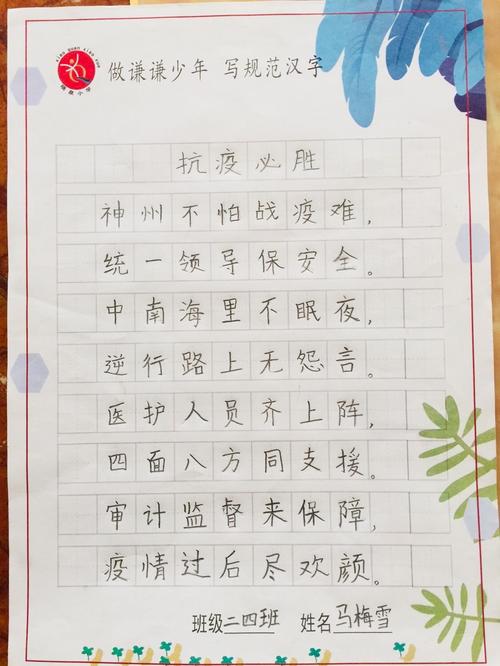 做谦谦少年 写规范汉字
抗疫必胜
神州不怕战疫难,
统一领导保安全。
中南海里不眠夜,
逆行路上无怨言。
医护人员齐上阵,
四面八方同支援。
审计监督来保障,
疫情过后尽欢颜。
班级二四班 姓名马梅雪